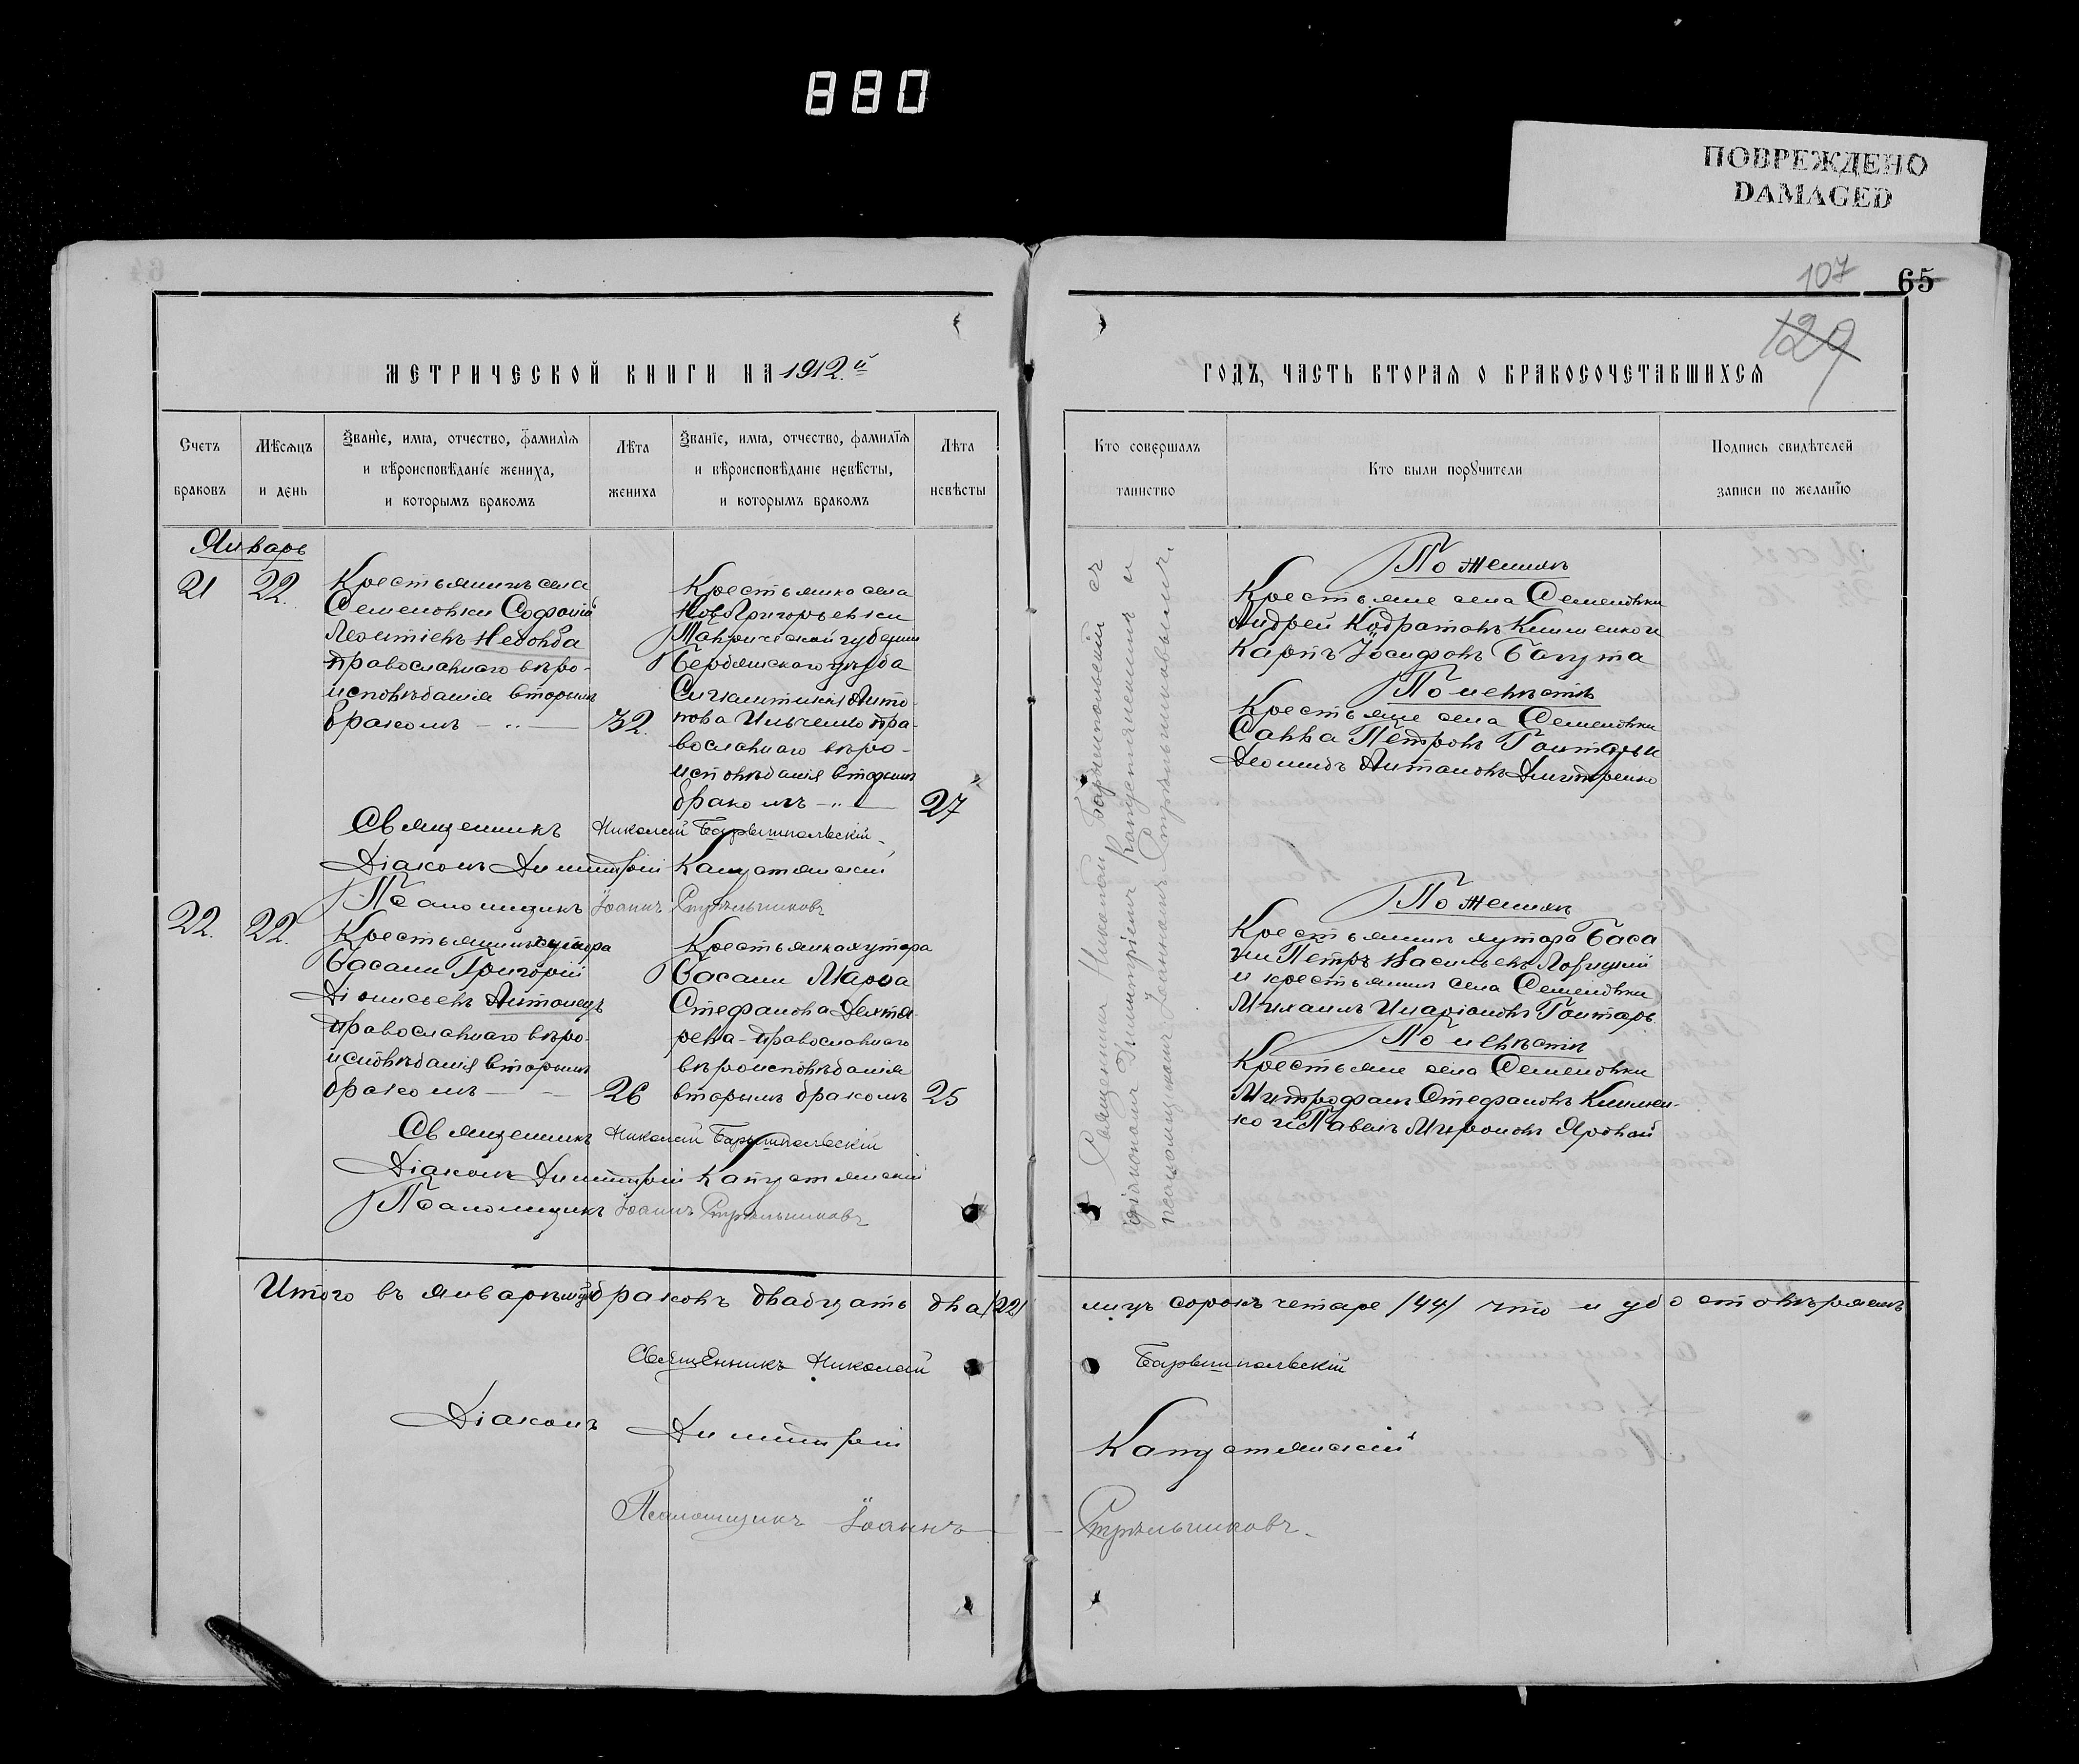 880
ПОВРЕЖДЕНО
DAMAGED
107
65
129
МЕТРИЧЕСКОЙ КНИГИ НА 1912.й
ГОДЪ, ЧАСТЬ ВТОРАЯ О БРАКОСОЧЕТАВШИХСЯ
Счетъ браковъ
Мѣсяцъ и день
Званіе, имя, отчество, фамилія и вѣроисповѣданіе жениха, и которымъ бракомъ
Лѣта жениха
Званіе, имя, отчество, фамилія и вѣроисповѣданіе невѣсты, и которымъ бракомъ
Лѣта невѣсты
Кто совершалъ таинство
Кто были поручители
Подпись свидѣтелей записи по желанію
Январь
21
22.
Крестьянинъ села
Семеновки Софоній
Леонтіевъ Недовѣда
православнаго вѣро-
исповѣданія вторымъ
бракомъ
32.
Крестьянка села
НовоГригорьевки
Таврической губерніи
Бердянскаго уѣзда
Анто-
нова Ильченко пра-
вославнаго вѣро-
исповѣданія вторымъ
бракомъ
27
Священникъ Николай Барышпольскій
Діаконъ Димитрій Капустянскій
Псаломщикъ Іоаннъ Стрѣльниковъ
Священник Николай Барышпольскій съ
діакономъ Димитріемъ Капустянскимъ и
псаломщикомъ Іоанномъ Стрѣльниковымъ.
По женихѣ
Крестьяне села Семеновки
Андрей Кодратовъ Клименко и
Карпъ Іосифовъ Багута
По невѣстѣ
Крестьяне села Семеновки
Савва Петровъ Гонтарь и
Леонидъ Антоновъ Дмитренко
22.
22.
Крестьянинъ хутора
Басани Григорій
Діонисьевъ Антонецъ
православнаго вѣро-
исповѣданія вторымъ
бракомъ
26
Крестьянка хутора
Басани Марѳа
Стефанова Дехтя-
рева - православнаго
вѣроисповѣданія
вторымъ бракомъ
25
Священникъ Николай Барышпольскій
Діаконъ Димитрій Капустянскій
Псаломщикъ Іоаннъ Стрѣльниковъ
По женихѣ
Крестьянинъ хутора Баса
ни Петръ Васильевъ
и крестьянинъ села Семеновки
Михаилъ Иларіоновъ Гонтарь
По невѣстѣ
Крестьяне села Семеновки
Митрофанъ Стефановъ Климен-
ко и Павелъ Мироновъ Яровой
Итого въ январѣ м-цѣ браковъ двадцать два /22/ лицъ сорокъ четаре /44/ что и удостовѣряемъ
Священникъ Николай Барышпольскій
Діаконъ Димитрій Капустянскій
Псаломщикъ Іоаннъ Стрѣльниковъ.